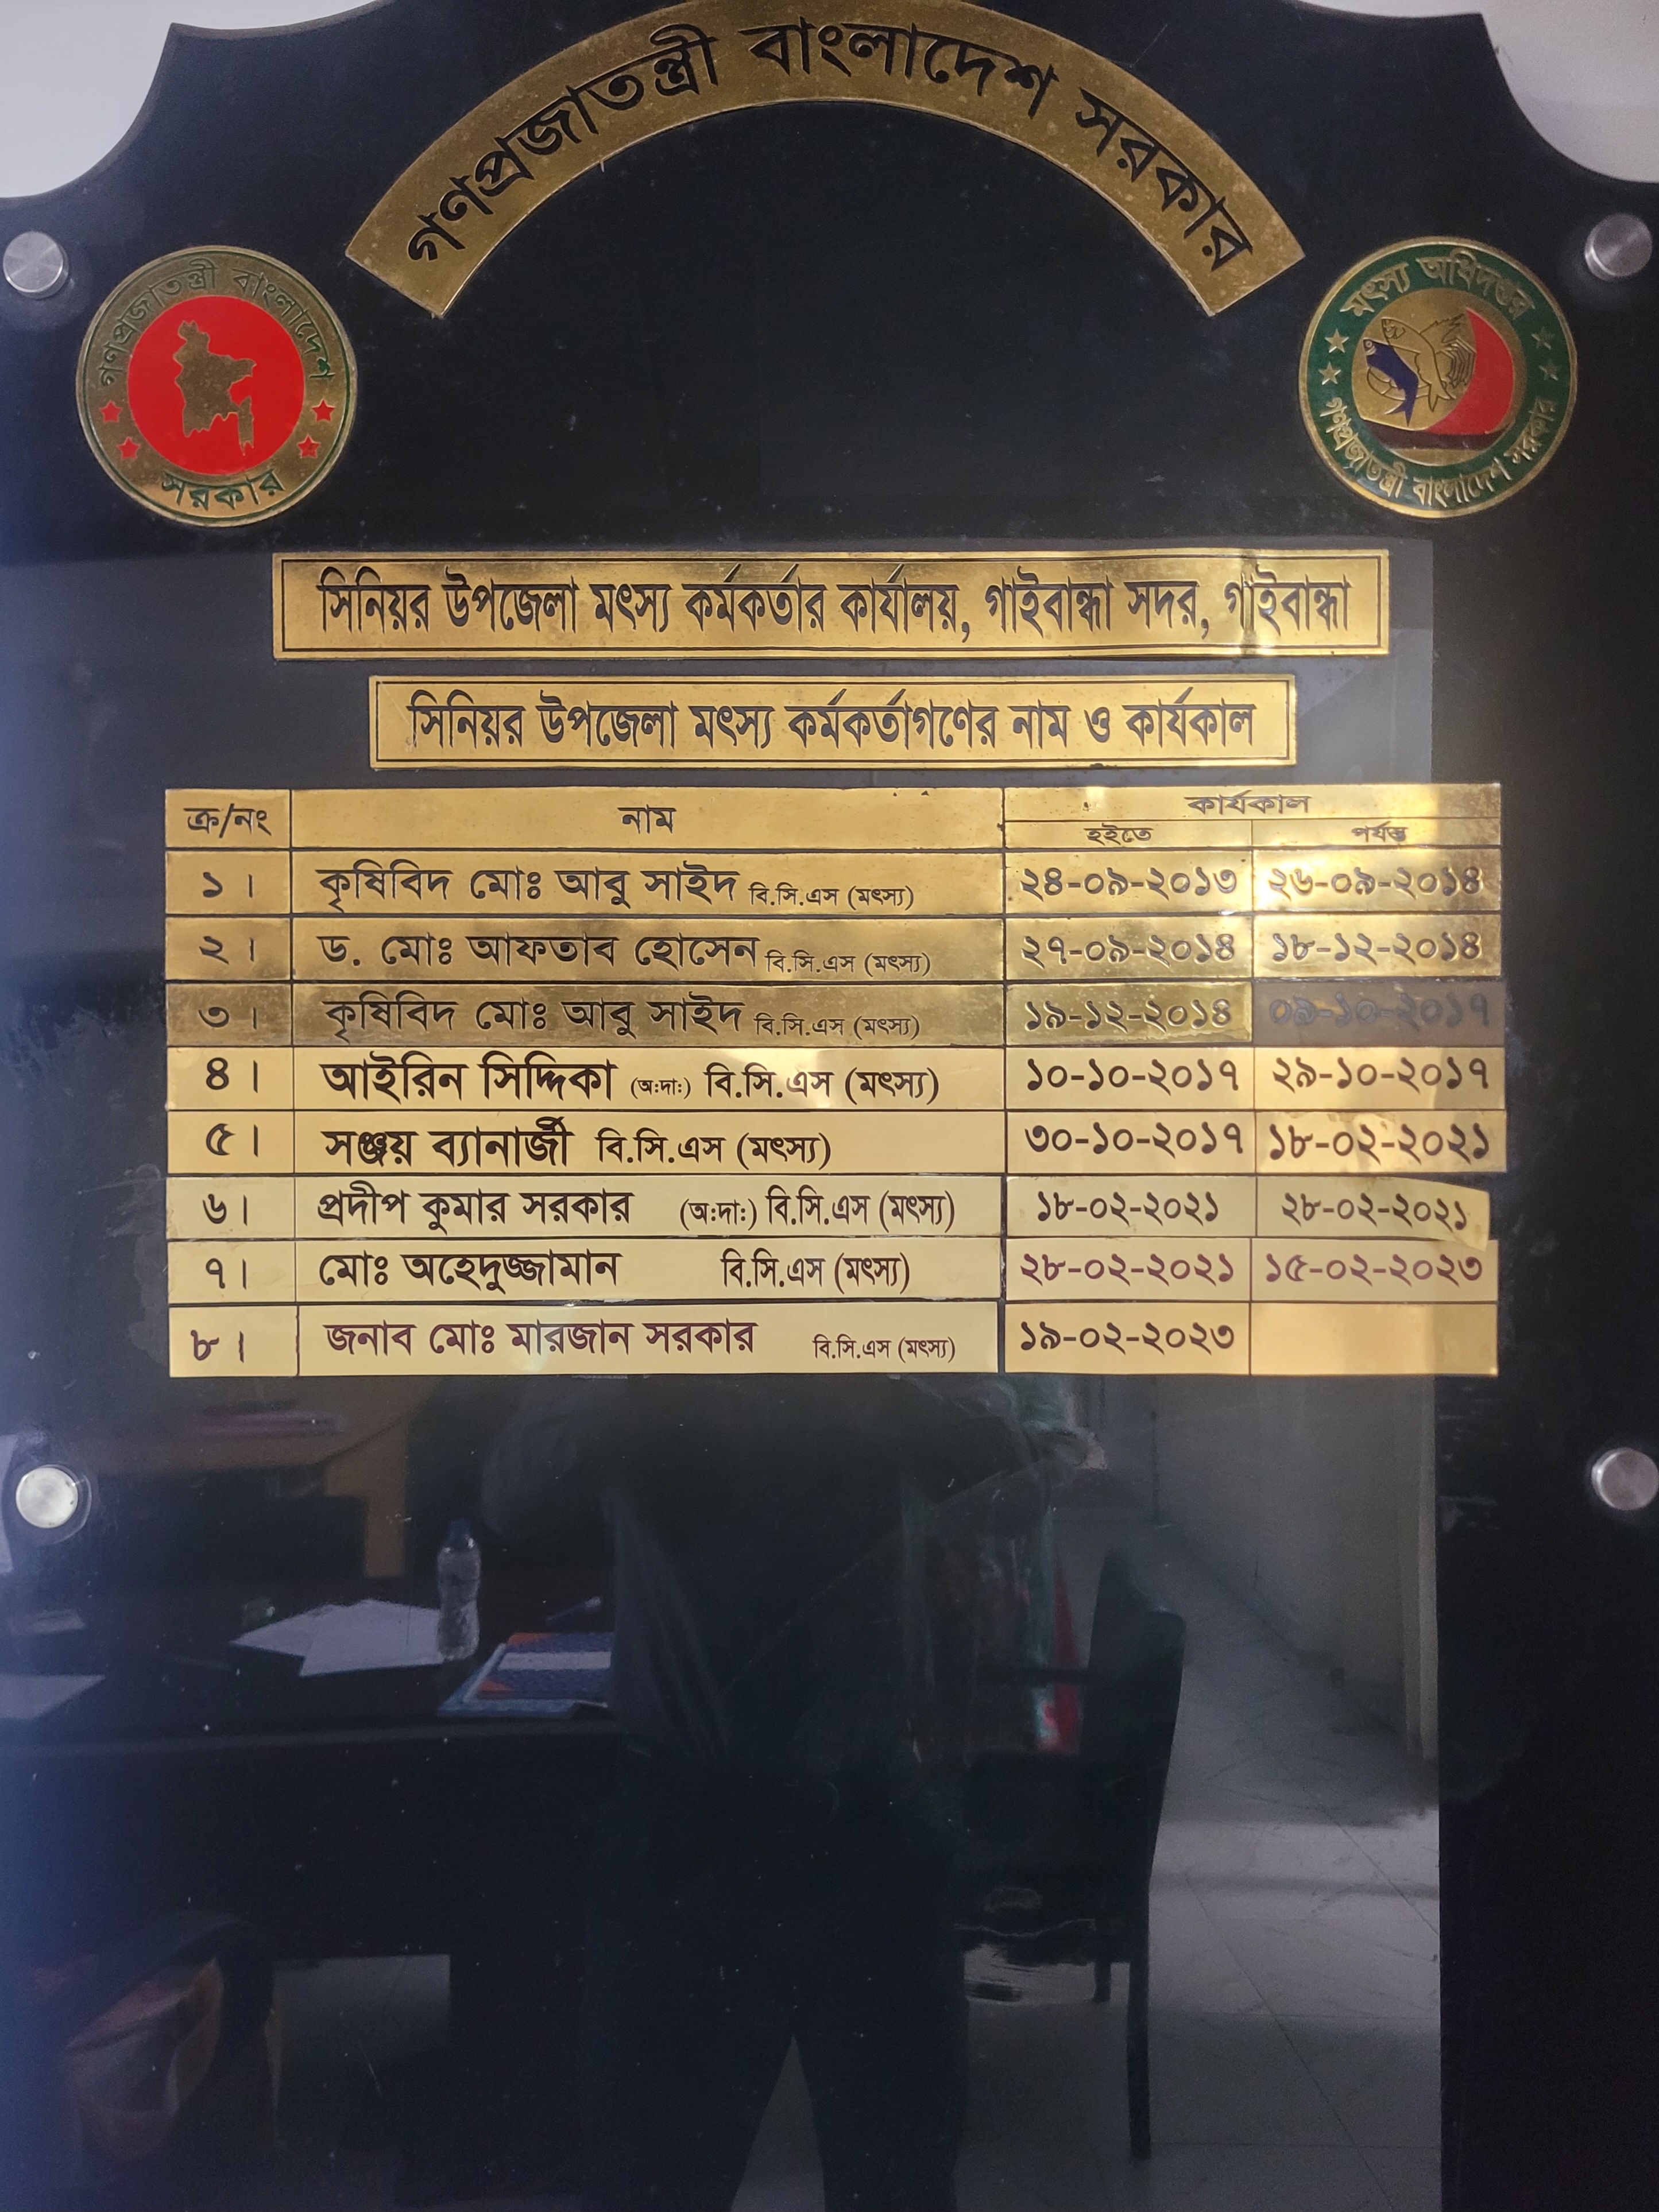 গণপ্রজাতন্ত্রী বাংলাদেশ সরকার
গণপ্রজাতন্ত্রী বাংলাদেশ
সরকার
মৎস্য অধিদপ্তর
গণপ্রজাতন্ত্রী বাংলাদেশ সরকার
সিনিয়র উপজেলা মৎস্য কর্মকর্তার কার্যালয়, গাইবান্ধা সদর, গাইবান্ধা
সিনিয়র উপজেলা মৎস্য কর্মকর্তাগণের নাম ও কার্যকাল
ক্র/নং নাম কার্যকাল
হইতে পর্যন্ত
১। কৃষিবিদ মোঃ আবু সাইদ বি.সি.এস (মৎস্য) ২৪-০৯-২০১৩ ২৬-০৯-২০১৪
২। ড. মোঃ আফতাব হোসেন বি.সি.এস (মৎস্য) ২৭-০৯-২০১৪ ১৮-১২-২০১৪
৩। কৃষিবিদ মোঃ আবু সাইদ বি.সি.এস (মৎস্য) ১৯-১২-২০১৪ ০৯-১০-২০১৭
৪। আইরিন সিদ্দিকা (অ:দা:) বি.সি.এস (মৎস্য) ১০-১০-২০১৭ ২৯-১০-২০১৭
৫। সঞ্জয় ব্যানার্জী বি.সি.এস (মৎস্য) ৩০-১০-২০১৭ ১৮-০২-২০২১
৬। প্রদীপ কুমার সরকার (অ:দা:) বি.সি.এস (মৎস্য) ১৮-০২-২০২১ ২৮-০২-২০২১
৭। মোঃ অহেদুজ্জামান বি.সি.এস (মৎস্য) ২৮-০২-২০২১ ১৫-০২-২০২৩
৮। জনাব মোঃ মারজান সরকার বি.সি.এস (মৎস্য) ১৯-০২-২০২৩